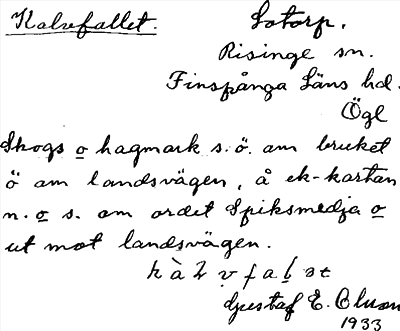 Kalvefallet.
Lotorp.
Risinge sn.
Finspånga Läns hd.
Ögl
Skogs o hagmark s.ö. om bruket
ö om landsvägen, å ek-kartan
n. o s. om ordet Spiksmedja o
ut mot landsvägen.
Gustaf E. Olson
1933